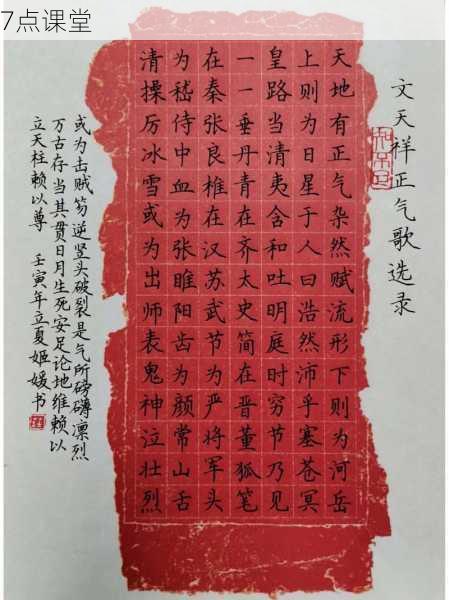 7点课堂
文天祥正气歌选录
天地有正气杂然赋流形下则为河岳
上则为日星于人曰浩然沛乎塞苍冥
皇路当清夷含和吐明庭时穷节乃见
一一垂丹青在齐太史简在晋董狐笔
在秦张良椎在汉苏武节为严将军头
为嵇侍中血为张睢阳齿为颜常山舌
清操厉冰雪或为出师表鬼神泣壮烈
或为击贼笏逆竖头破裂是气所磅礴凛烈
万古存当其贯日月生死安足论地维赖以
立天柱赖以尊 壬寅年立夏姬媛书